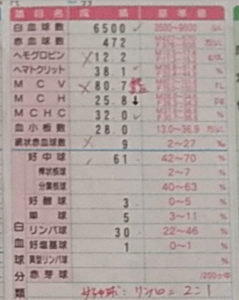 項目名 成績 基準値
白血球数 6500
赤血球数 472
ヘモグロビン 12.2
ヘマトクリット 38.1
MCV 80.7
MCH 25.8 ↓
MCHC 32.0
血小板数 28.0 13.0~36.9
網状赤血球数 9 2~27 ‰
好中球 61 42~70 %
桿状核球 2~7 %
分葉核球 40~63 %
好酸球 3 0~5 %
単球 5 3~11 %
リンパ球 30 22~46 %
好塩基球 1 0~1 %
異型リンパ球 %
赤芽球 /200
白血球分類
好中球:リンパ球=2:1